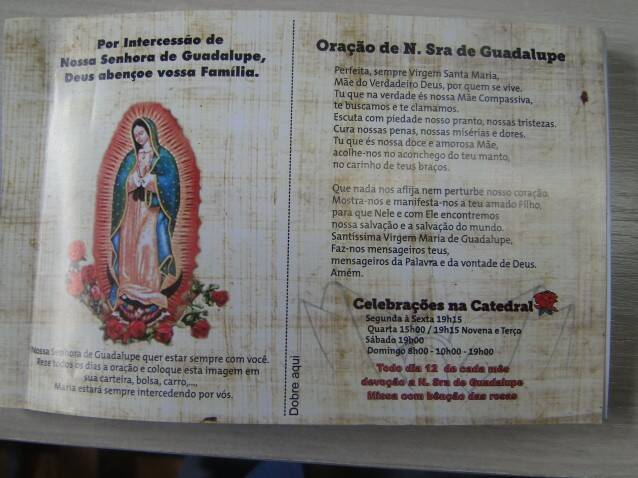 Por Intercessão de
Nossa Senhora de Guadalupe,
Deus abençoe vossa Família.
Nossa Senhora de Guadalupe quer estar sempre com você.
Reze todos os dias a oração e coloque esta imagem em
sua carteira, bolsa, carro,...,
Maria estará sempre intercedendo por vós.
Dobre aqui
Oração de N. Sra de Guadalupe
Perfeita, sempre Virgem Santa Maria,
Mãe do Verdadeiro Deus, por quem se vive.
Tu que na verdade és nossa Mãe Compassiva,
te buscamos e te clamamos.
Escuta com piedade nosso pranto, nossas tristezas.
Cura nossas penas, nossas misérias e dores.
Tu que és nossa doce e amorosa Mãe,
acolhe-nos no aconchego do teu manto,
no carinho de teus braços.
Que nada nos aflija nem perturbe nosso coração.
Mostra-nos e manifesta-nos a teu amado Filho,
para que Nele e com Ele encontremos
nossa salvação e a salvação do mundo.
Santíssima Virgem Maria de Guadalupe,
Faz-nos mensageiros teus,
mensageiros da Palavra e da vontade de Deus.
Amém.
Celebrações na Catedral
Segunda à Sexta 19h15
Quarta 15h00 / 19h15 Novena e Terço
Sábado 19h00
Domingo 8h00 - 10h00 - 19h00
Todo dia 12 de cada mês
devoção a N. Sra de Guadalupe
Missa com bênção das rosas